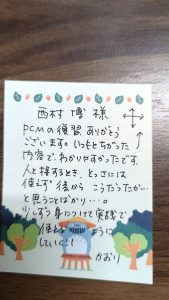 西村 優 様
PCMの復習 ありがとう
ございます。いつもとちがった
内容で、わかりやすかったです。
人と接するとき、とっさには
使えず 後から こうだったかい…
と思うことばかり…。
少しずつ身につけて実践で
使える ように
したいな!
かおり